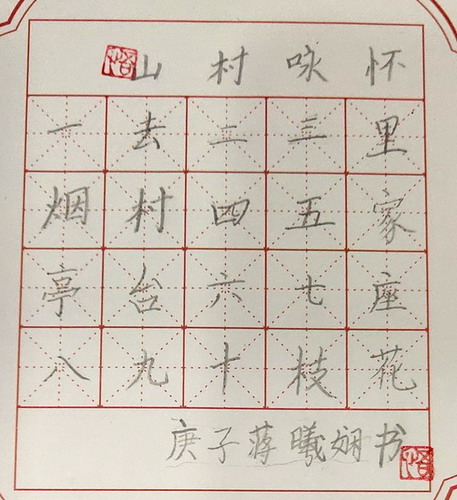 山村咏怀
一去二三里
烟村四五家
亭台六七座
八九十枝花
庚子蒋曦娴书